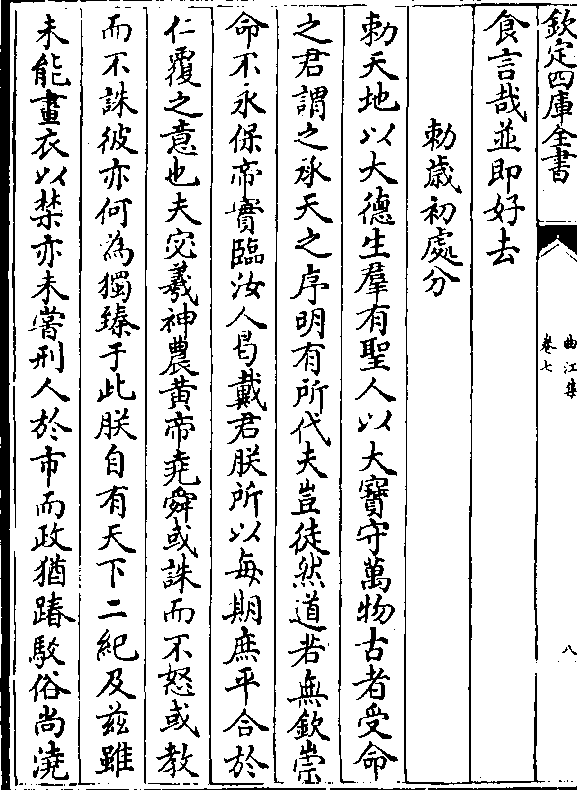 欽定四庫全書
曲江集
卷七
八
食言哉並即好去
勅歲初處分
勅天地以大德生羣有聖人以大寶守萬物古者受命
之君謂之承天之序明有所代夫豈徒然道若無欽崇
命不永保帝實臨汝人曷戴君朕所以每期庶平合於
仁覆之意也夫宓羲神農黃帝堯舜或誅而不怒或教
而不誅彼亦何為獨臻于此朕自有天下二紀及茲雖
未能畫衣以禁亦未嘗刑人於市而政猶踳駁俗尚澆